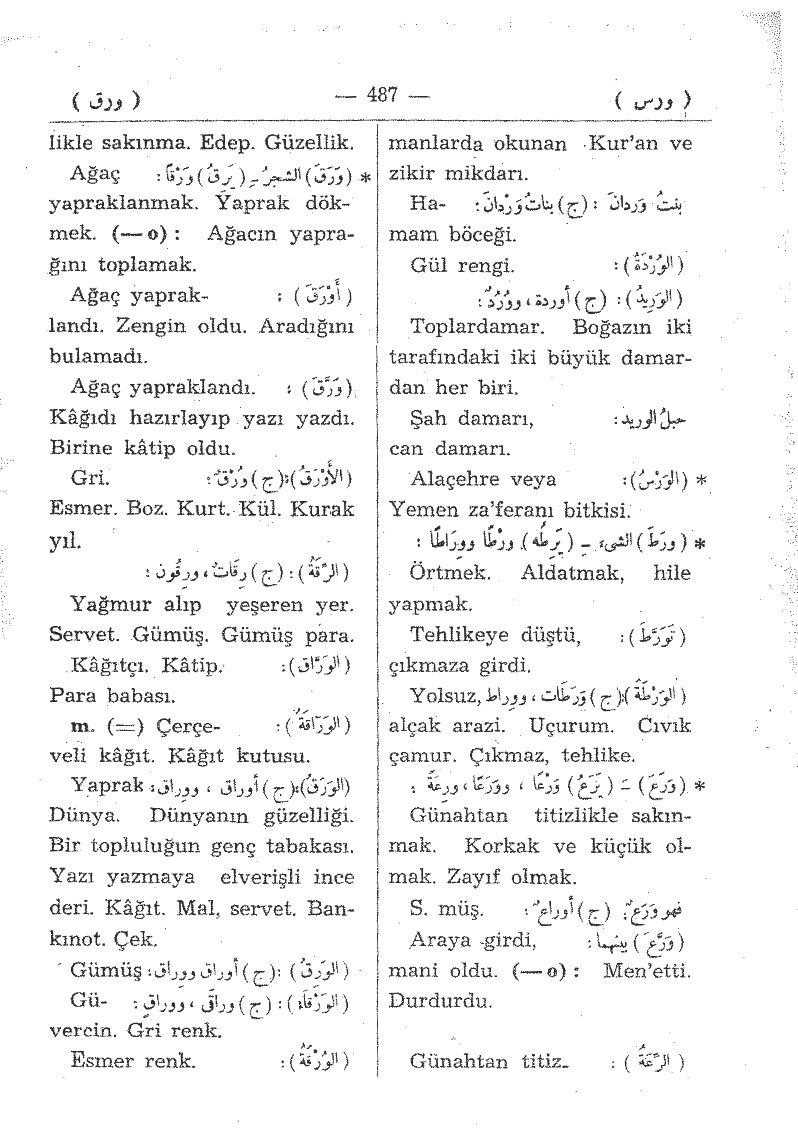 ( ورس ) — 487 — ( ورق )
manlarda okunan Kur'an ve
zikir mikdarı.
بنتُ وَردانَ : (ج) بناتُ وَرْدانَ: Ha-
mam böceği.
(الوُرْدَةُ) : Gül rengi.
(الوَرِيدُ): (ج) أوردة، ووُرُدٌ:
Toplardamar. Boğazın iki
tarafındaki iki büyük damar-
dan her biri.
حبلُ الوريد: Şah damarı,
can damarı.
* (الوَرْسُ): Alaçehre veya
Yemen za'feranı bitkisi.
* (ورَطَ) الشيءَ ـِ (يَرِطُه) ورْطًا ووِراطًا :
Örtmek. Aldatmak, hile
yapmak.
(تَورَّطَ): Tehlikeye düştü,
çıkmaza girdi.
(الوَرْطَةُ):(ج) وَرَطَات، ووِراط Yolsuz,
alçak arazi. Uçurum. Cıvık
çamur. Çıkmaz, tehlike.
* (وَرَعَ) ـَ (يَرَعُ) وَرْعًا ، ووَرَعًا، ورِعَةً :
Günahtan titizlikle sakın-
mak. Korkak ve küçük ol-
mak. Zayıf olmak.
فهو وَرَعٌ: (ج) أوراعٌ: S. müş.
(وَرَّعَ) بينهما: Araya girdi,
mani oldu. (—o) : Men'etti.
Durdurdu.
(الرِّعَةُ) : Günahtan titiz-
likle sakınma. Edep. Güzellik.
* (وَرَقَ) الشجرُ ـِ (يَرِقُ) وَرْقًا: Ağaç
yapraklanmak. Yaprak dök-
mek. (—o) : Ağacın yapra-
ğını toplamak.
(أَوْرَقَ) : Ağaç yaprak-
landı. Zengin oldu. Aradığını
bulamadı.
(وَرَّقَ) : Ağaç yapraklandı.
Kâğıdı hazırlayıp yazı yazdı.
Birine kâtip oldu.
(الأَوْرَقُ):(ج) وُرْقٌ: Gri.
Esmer. Boz. Kurt. Kül. Kurak
yıl.
(الرِّقَةُ) : (ج) رِقَاتٌ، ورِقُون :
Yağmur alıp yeşeren yer.
Servet. Gümüş. Gümüş para.
(الوَرَّاق): Kâğıtçı. Kâtip.
Para babası.
(الوَرَّاقَةُ) : m. (=) Çerçe-
veli kâğıt. Kâğıt kutusu.
(الوَرَقُ):(ج) أوراق ، ووِراق: Yaprak
Dünya. Dünyanın güzelliği.
Bir topluluğun genç tabakası.
Yazı yazmaya elverişli ince
deri. Kâğıt. Mal, servet. Ban-
kınot. Çek.
(الوَرِقُ) :(ج) أوراق ووِراق: Gümüş
(الوَرْقَاءُ) : (ج) وِراقٌ، ووِراقٍ : Gü-
vercin. Gri renk.
(الوُرْقَةُ): Esmer renk.